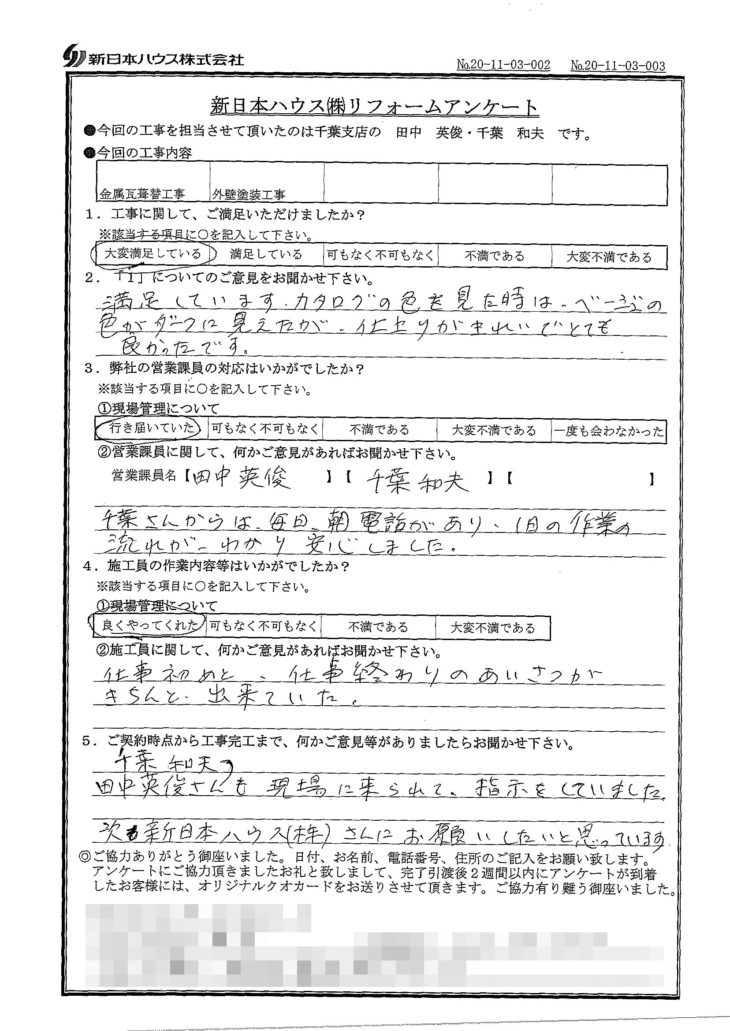 新日本ハウス株式会社
No.20-11-03-002 No.20-11-03-003
新日本ハウス㈱リフォームアンケート
●今回の工事を担当させて頂いたのは千葉支店の 田中 英俊・千葉 和夫 です。
●今回の工事内容
金属瓦葺替工事 外壁塗装工事
1．工事に関して、ご満足いただけましたか？
※該当する項目に○を記入して下さい。
大変満足している 満足している 可もなく不可もなく 不満である 大変不満である
2．「1」についてのご意見をお聞かせ下さい。
満足しています。カタログの色を見た時は、ベージュの
色がダークに見えたが、仕上りがきれいでとても
良かったです。
3．弊社の営業課員の対応はいかがでしたか？
※該当する項目に○を記入して下さい。
①現場管理について
行き届いていた 可もなく不可もなく 不満である 大変不満である 一度も会わなかった
②営業課員に関して、何かご意見があればお聞かせ下さい。
営業課員名【田中英俊 】【 千葉 和夫 】【 】
千葉さんからは、毎日、朝電話があり、1日の作業の
流れが、わかり安心しました。
4．施工員の作業内容等はいかがでしたか？
※該当する項目に○を記入して下さい。
①現場管理について
良くやってくれた 可もなく不可もなく 不満である 大変不満である
②施工員に関して、何かご意見があればお聞かせ下さい。
仕事初めと、仕事終わりのあいさつが
きちんと、出来ていた。
5．ご契約時点から工事完工まで、何かご意見等がありましたらお聞かせ下さい。
千葉 和夫
田中英俊さんも現場に来られて、指示をしていました。
次も新日本ハウス(株)さんにお願いしたいと思っています
◎ご協力ありがとう御座いました。日付、お名前、電話番号、住所のご記入をお願い致します。
アンケートにご協力頂きましたお礼と致しまして、完了引渡後2週間以内にアンケートが到着
したお客様には、オリジナルクオカードをお送りさせて頂きます。ご協力有り難う御座いました。